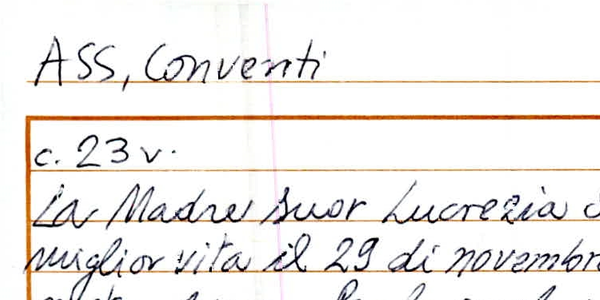 ASS, Conventi
c. 23 v.
La Madre suor Lucrezia
miglior vita il 29 di novembre